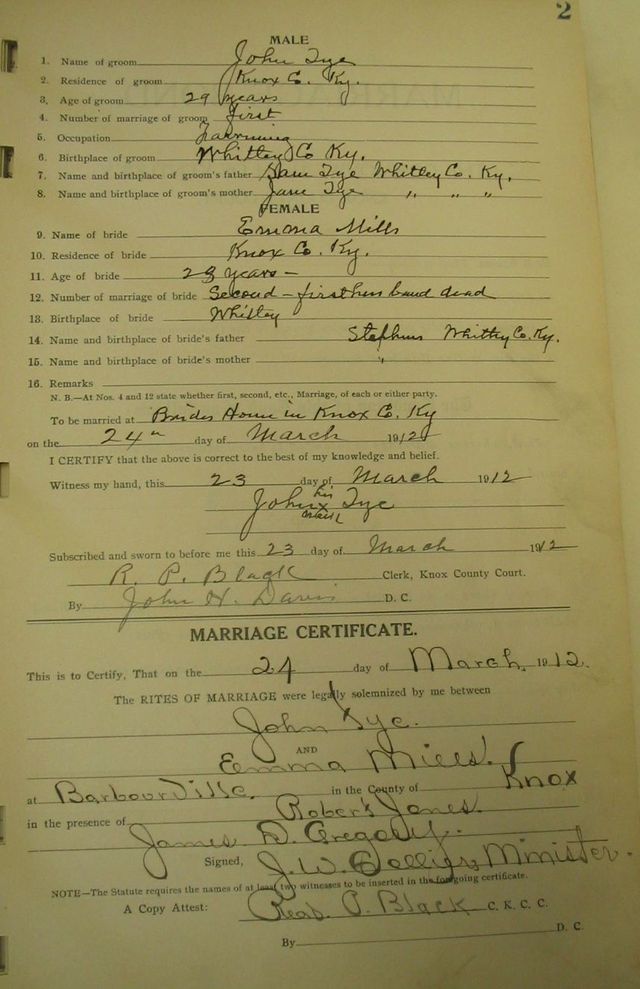 2
MALE
1. Name of groom John Tye
2. Residence of groom Knox Co. Ky.
3. Age of groom 29 years
4. Number of marriage of groom first
5. Occupation Farming
6. Birthplace of groom Whitley Co Ky.
7. Name and birthplace of groom's father Tye Whitley Co. Ky.
8. Name and birthplace of groom's mother Jane Tye " " "
FEMALE
9. Name of bride Emma Mills
10. Residence of bride Knox Co. Ky.
11. Age of bride 23 years -
12. Number of marriage of bride Second - first husband dead
13. Birthplace of bride Whitley
14. Name and birthplace of bride's father Stephens Whitley Co. Ky.
15. Name and birthplace of bride's mother "
16. Remarks
N. B.—At Nos. 4 and 12 state whether first, second, etc., Marriage, of each or either party.
To be married at Brides Home in Knox Co. Ky
on the 24th day of March 1912
I CERTIFY that the above is correct to the best of my knowledge and belief.
Witness my hand, this 23 day of March 1912
his
John x Tye
mark
Subscribed and sworn to before me this 23 day of March 1912
R. P. Black Clerk, Knox County Court.
By John H. Davis D. C.
MARRIAGE CERTIFICATE.
This is to Certify, That on the 24 day of March, 1912.
The RITES OF MARRIAGE were legally solemnized by me between
John Tye.
AND
Emma Mills
at Barbourville. in the County of Knox
in the presence of Robert Jones.
James D. Gregory.
Signed, J. W. Minister.
NOTE—The Statute requires the names of at least two witnesses to be inserted in the foregoing certificate.
A Copy Attest: P. Black C. K. C. C.
By D. C.